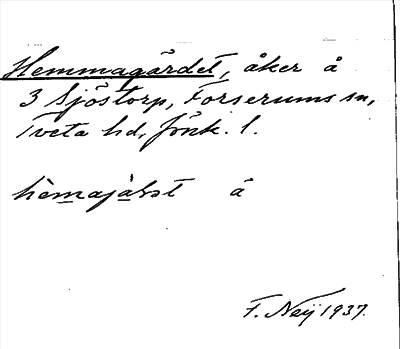 Hemmagärdet, åker å
3 Sjöstorp, Forserums sn,
Tveta hd, Jönk. l.
å
F. Neij 1937.